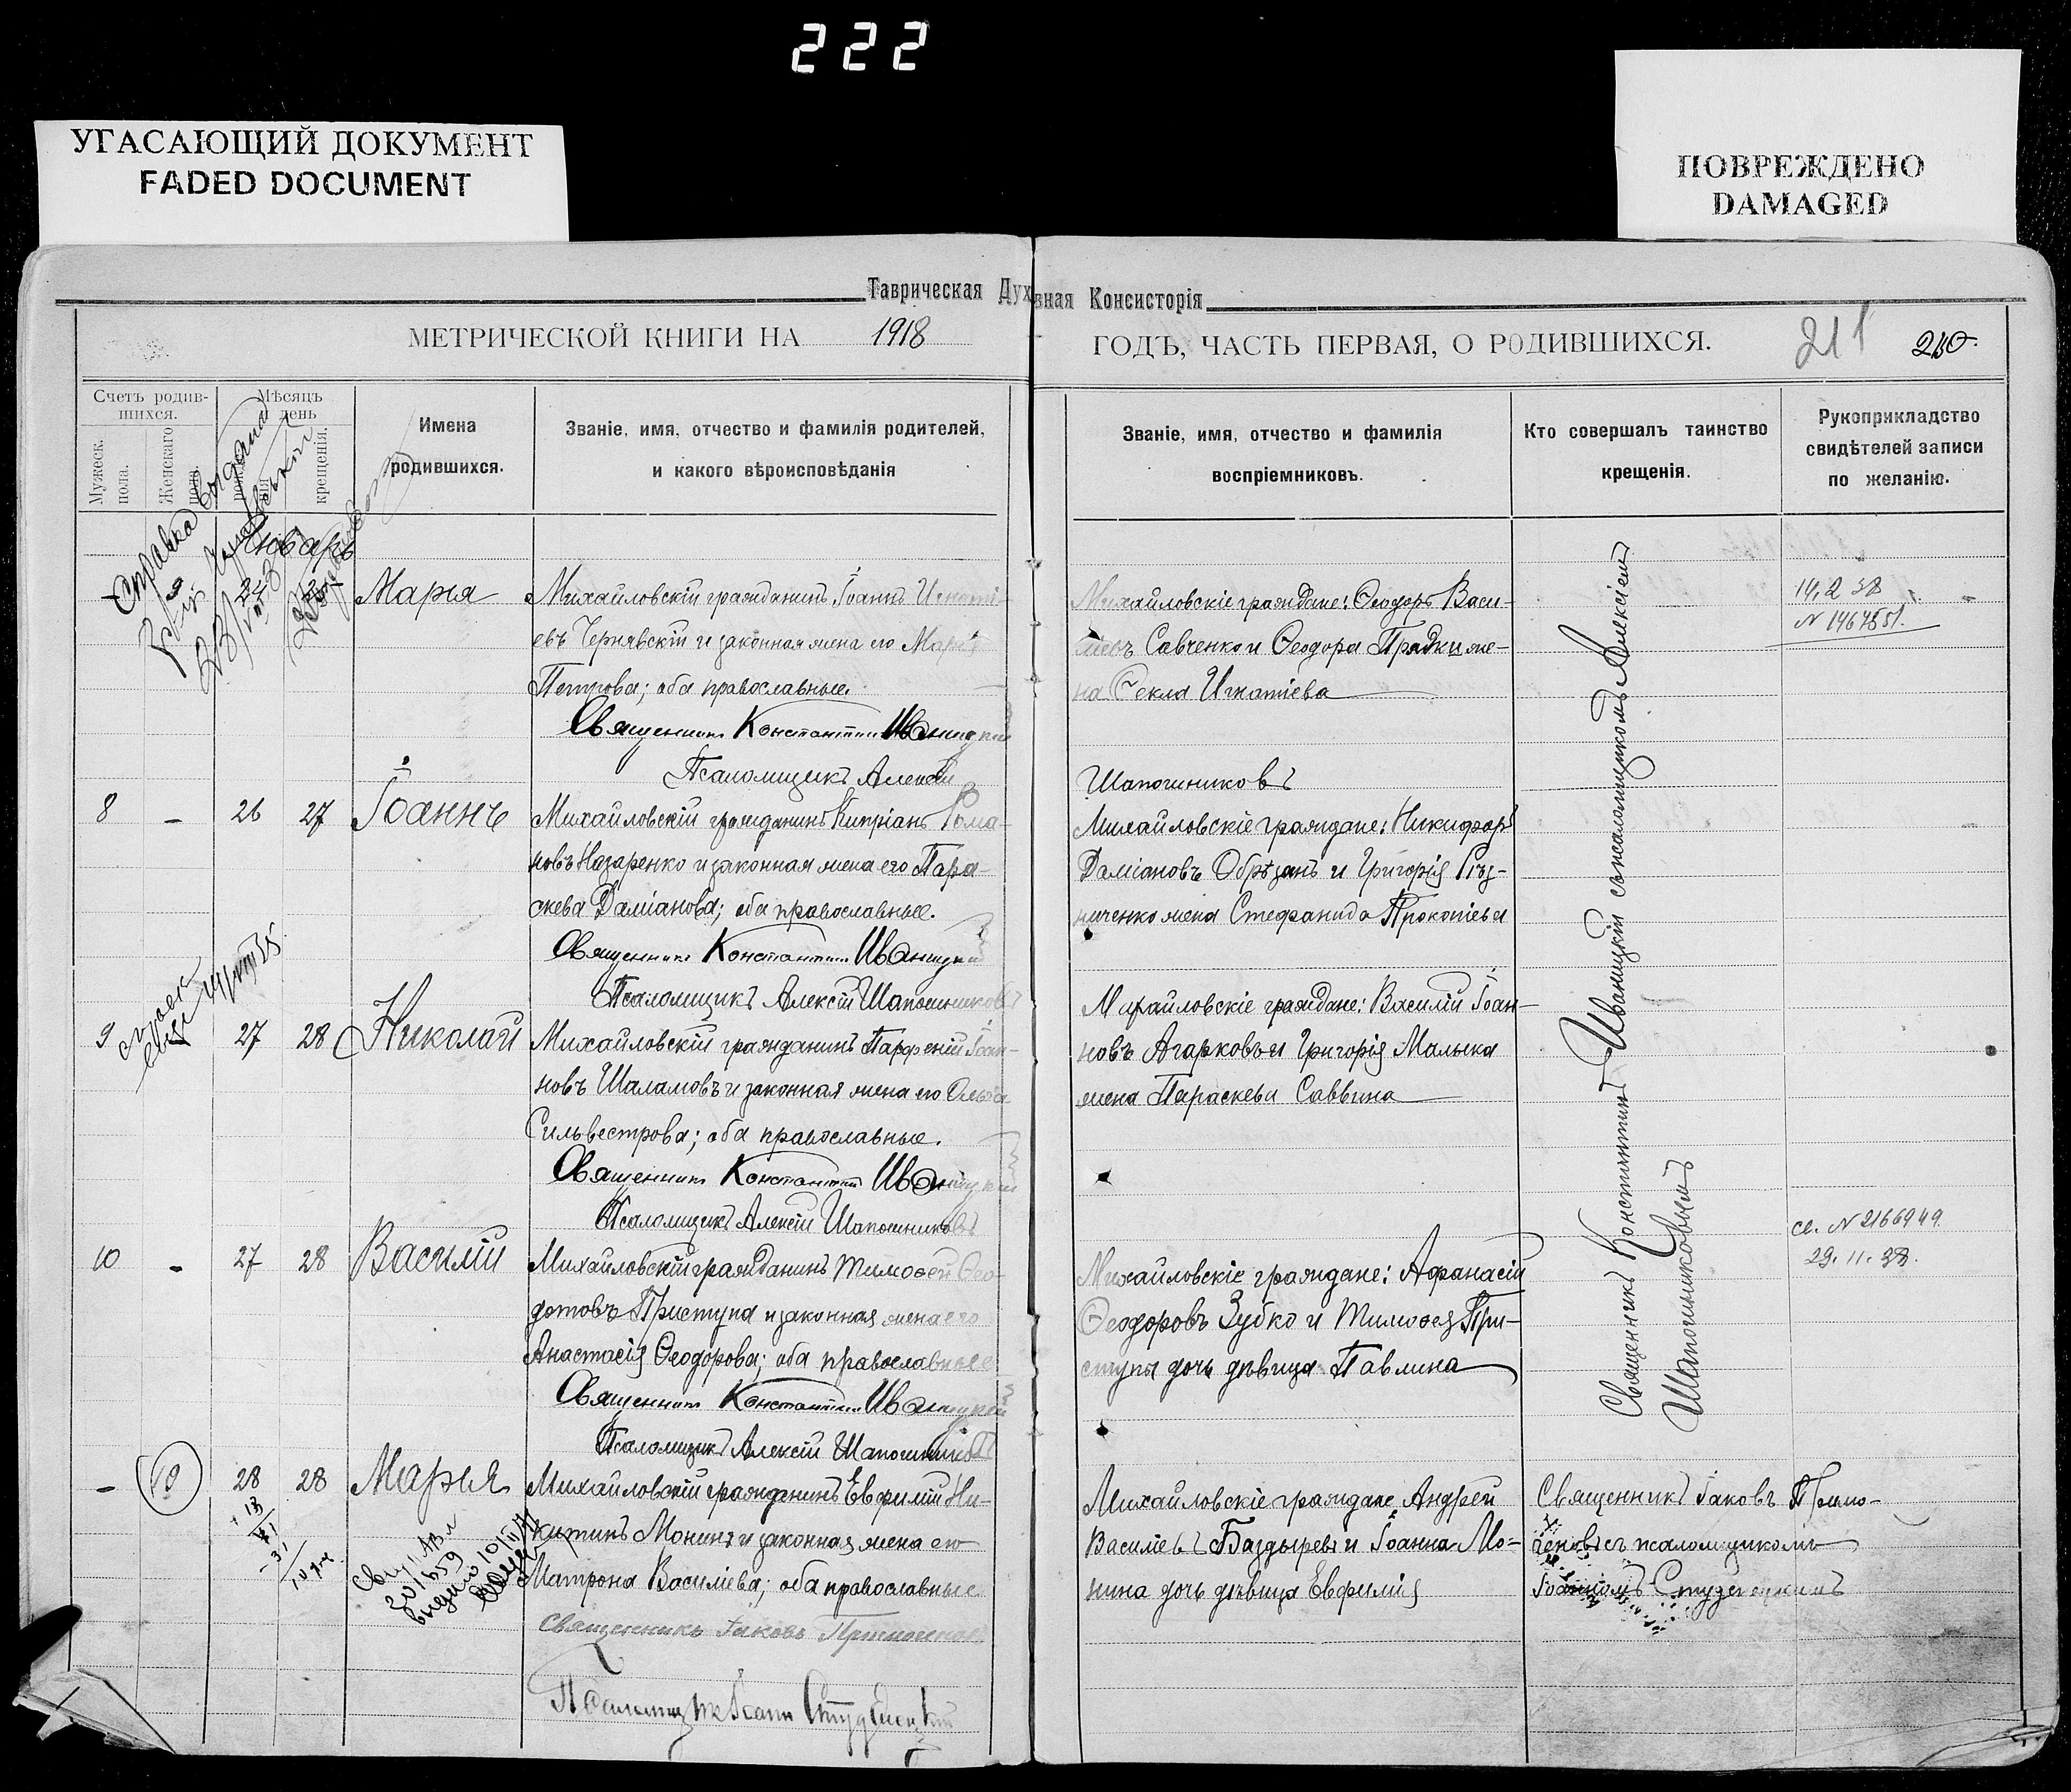 222
УГАСАЮЩИЙ ДОКУМЕНТ
FADED DOCUMENT
ПОВРЕЖДЕНО
DAMAGED
Таврическая Духовная Консисторія
МЕТРИЧЕСКОЙ КНИГИ НА 1918 ГОДЪ, ЧАСТЬ ПЕРВАЯ, О РОДИВШИХСЯ.
211 210.
Счетъ родив-
шихся.
Мужеск.
пола.
Женскаго
Мѣсяцъ
день
крещенія.
Имена
родившихся.
Званіе, имя, отчество и фамилія родителей,
и какого вѣроисповѣданія
Званіе, имя, отчество и фамилія
воспріемниковъ.
Кто совершалъ таинство
крещенія.
Рукоприкладство
свидѣтелей записи
по желанію.
Справка выдана
Январь
Марія
Михайловскій гражданинъ Іоаннъ Игнаті-
евъ Чернявскій и законная жена его Марія
Петрова; оба православные.
Священникъ Константинъ Иваницкій
Псаломщикъ Алексій
Михайловскіе граждане: Ѳеодоръ Васи-
ліевъ Савченко и Ѳеодора Прядки же-
на Ѳекла Игнатіева
Шапошниковъ
14.2 38
N 1467851.
8 - 26 27 Іоаннъ
Михайловскій гражданинъ Кипріанъ Рома-
новъ Назаренко и законная жена его Пара-
скева Даміанова; оба православные.
Священникъ Константинъ Иваницкій
Псаломщикъ Алексій Шапошниковъ
Михайловскіе граждане: Никифоръ
Даміановъ Обрѣзанъ и Григорія Рѣз-
ниченко жена Стефанида Прокопіева
9 27 28 Николай
Михайловскій гражданинъ Парфеній Іоан-
новъ Шаламовъ и законная жена его Ольга
Сильвестрова; оба православные.
Священникъ Константинъ Иваницкій
Псаломщикъ Алексій Шапошниковъ
Михайловскіе граждане: Василій Іоан-
новъ Агарковъ и Григорія Малыка
жена Параскева Саввина
10 - 27 28 Василій
Михайловскій гражданинъ Тимоѳей Ѳео-
дотовъ Приступа и законная жена его
Анастасія Ѳеодорова; оба православные
Священникъ Константинъ Иваницкій
Псаломщикъ Алексій Шапошниковъ
Михайловскіе граждане: Афанасій
Ѳеодоровъ Зубко и Тимоѳея При-
ступы дочь дѣвица Павлина
св. N 2166949.
29.11.38.
Священникъ Константинъ Иваницкій съ псаломщикомъ Алексіемъ
Шапошниковымъ
- 10 28 28 Марія
Михайловскій гражданинъ Евфимій Ни-
китинъ Монинъ и законная жена его
Матрона Василіева; оба православные
Священникъ Іаковъ
Псаломщикъ Іоаннъ Студенецкій
Михайловскіе граждане Андрей
Василіевъ Баздыревъ и Іоанна Мо-
нина дочь дѣвица Евфимія
Священникъ Іаковъ
съ псаломщикомъ
Іоанномъ Студенецкимъ